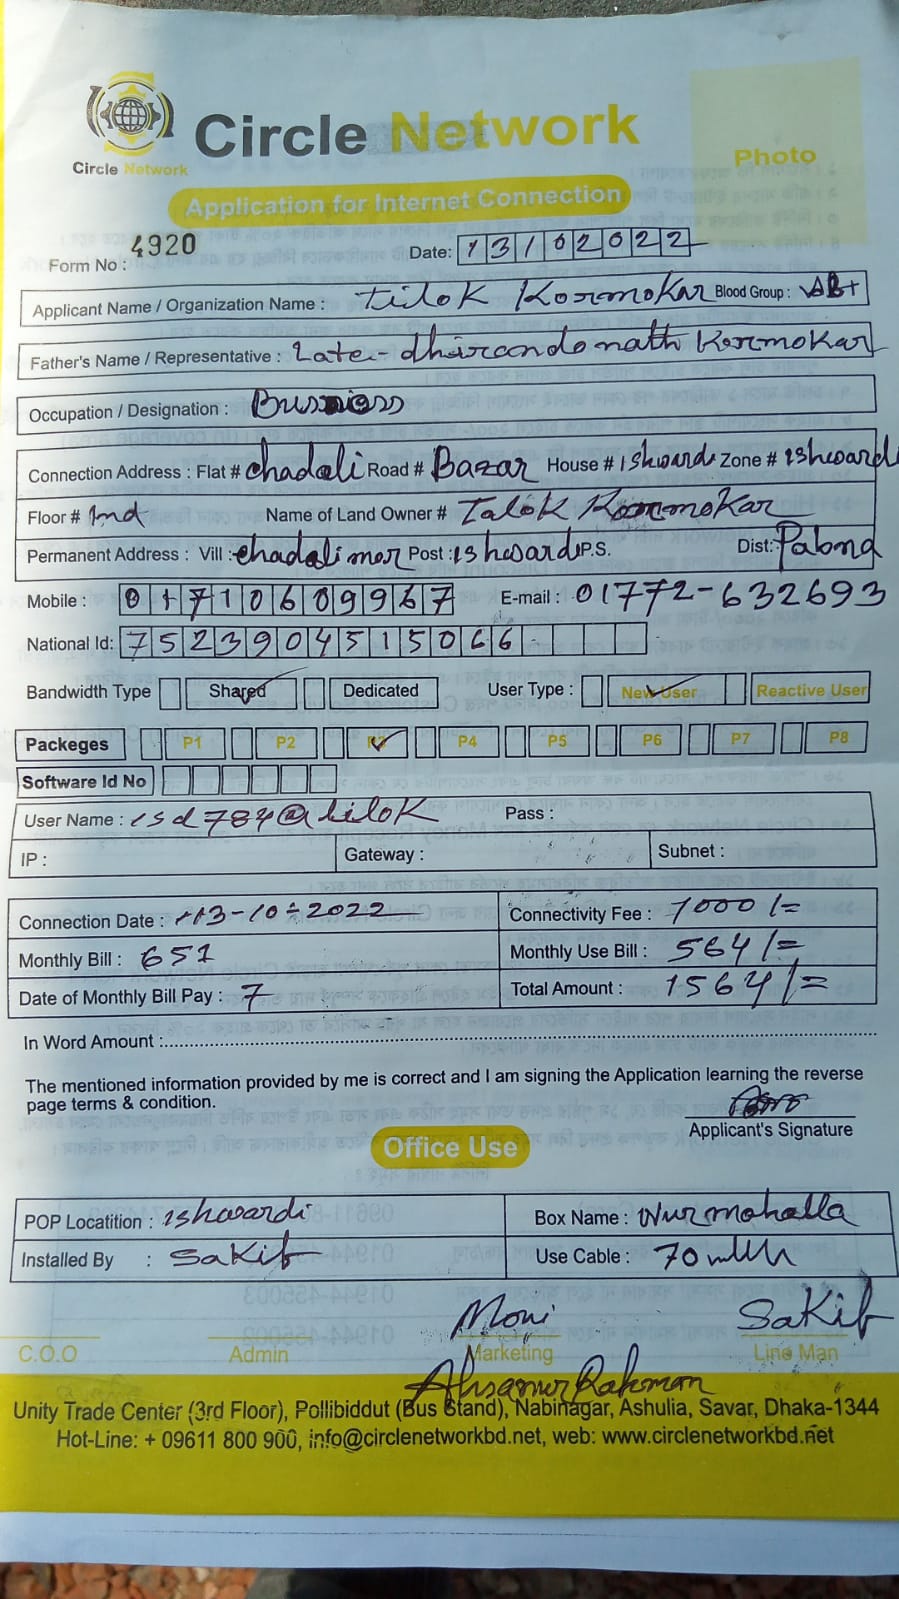 Circle Network
Circle Network
Photo
Application for Internet Connection
Form No : 4920
Date: 13/02022
Applicant Name / Organization Name : Tilok Kormokar Blood Group : AB+
Father's Name / Representative : Late - dhirandonath Kormokar
Occupation / Designation : Business
Connection Address : Flat # chadali Road # Bazar House # ishwardi Zone # ishwardi
Floor # Ind Name of Land Owner # Talok Kormokar
Permanent Address : Vill : chadali mor Post : ishwardi P.S. Dist: Pabna
Mobile : 01710609967 E-mail : 01772-632693
National Id: 7523904515066
Bandwidth Type Shared Dedicated User Type : New User Reactive User
Packeges P1 P2 P3 P4 P5 P6 P7 P8
Software Id No
User Name : isd784@tilok Pass :
IP : Gateway : Subnet :
Connection Date : 13-10-2022 Connectivity Fee : 1000/=
Monthly Bill : 651 Monthly Use Bill : 564/=
Date of Monthly Bill Pay : 7 Total Amount : 1564/=
In Word Amount :
The mentioned information provided by me is correct and I am signing the Application learning the reverse
page terms & condition.
Applicant's Signature
Office Use
POP Locatition : ishwardi Box Name : Nurmohalla
Installed By : Sakib Use Cable : 70
Moni Sakib
C.O.O Admin Marketing Line Man
Ahsanur Rahman
Unity Trade Center (3rd Floor), Pollibiddut (Bus Stand), Nabinagar, Ashulia, Savar, Dhaka-1344
Hot-Line: + 09611 800 900, info@circlenetworkbd.net, web: www.circlenetworkbd.net